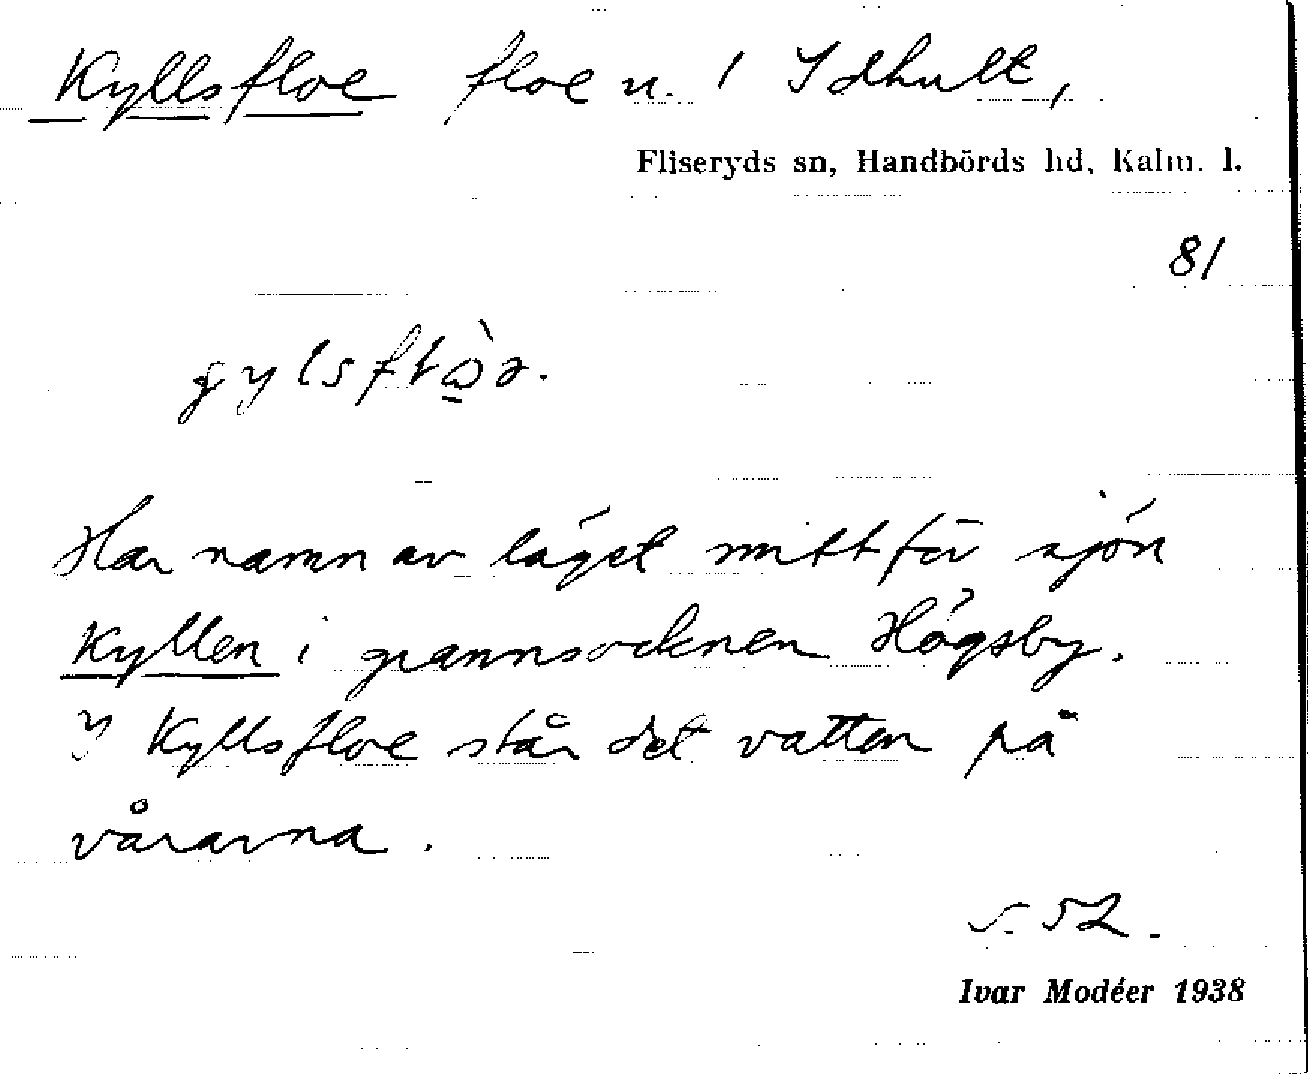 Kyllsfloe floe n. i Idhult,
Fliseryds sn, Handbörds hd, Kalm. l.
81
Har namn av läget mitt för sjön
Kyllen i grannsocknen Högsby.
I Kyllsfloe står det vatten på
vårarna.
s. 52.
Ivar Modéer 1938